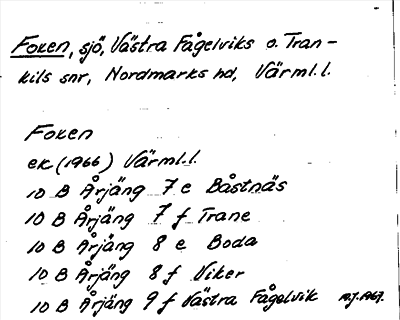 Foxen, sjö, Västra Fågelviks o. Tran-
kils snr, Nordmarks hd, Värml.l.
Foxen
ek (1966) Värml.l.
10 B Årjäng 7 e Båstnäs
10 B Årjäng 7 f Trane
10 B Årjäng 8 e Boda
10 B Årjäng 8 f Viker
10 B Årjäng 9 f Västra Fågelvik